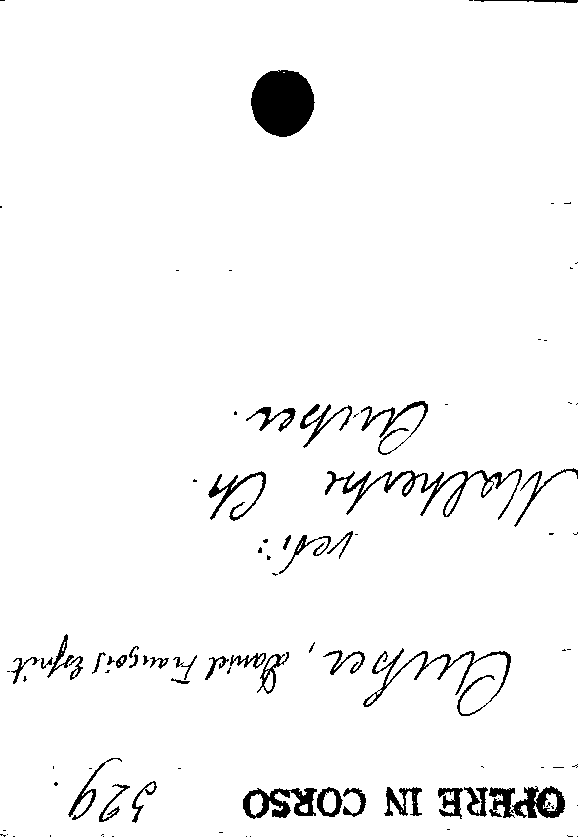 OPERE IN CORSO 329.
Auber, Daniel François Esprit
vedi:
Malherbe Ch.
Auber.